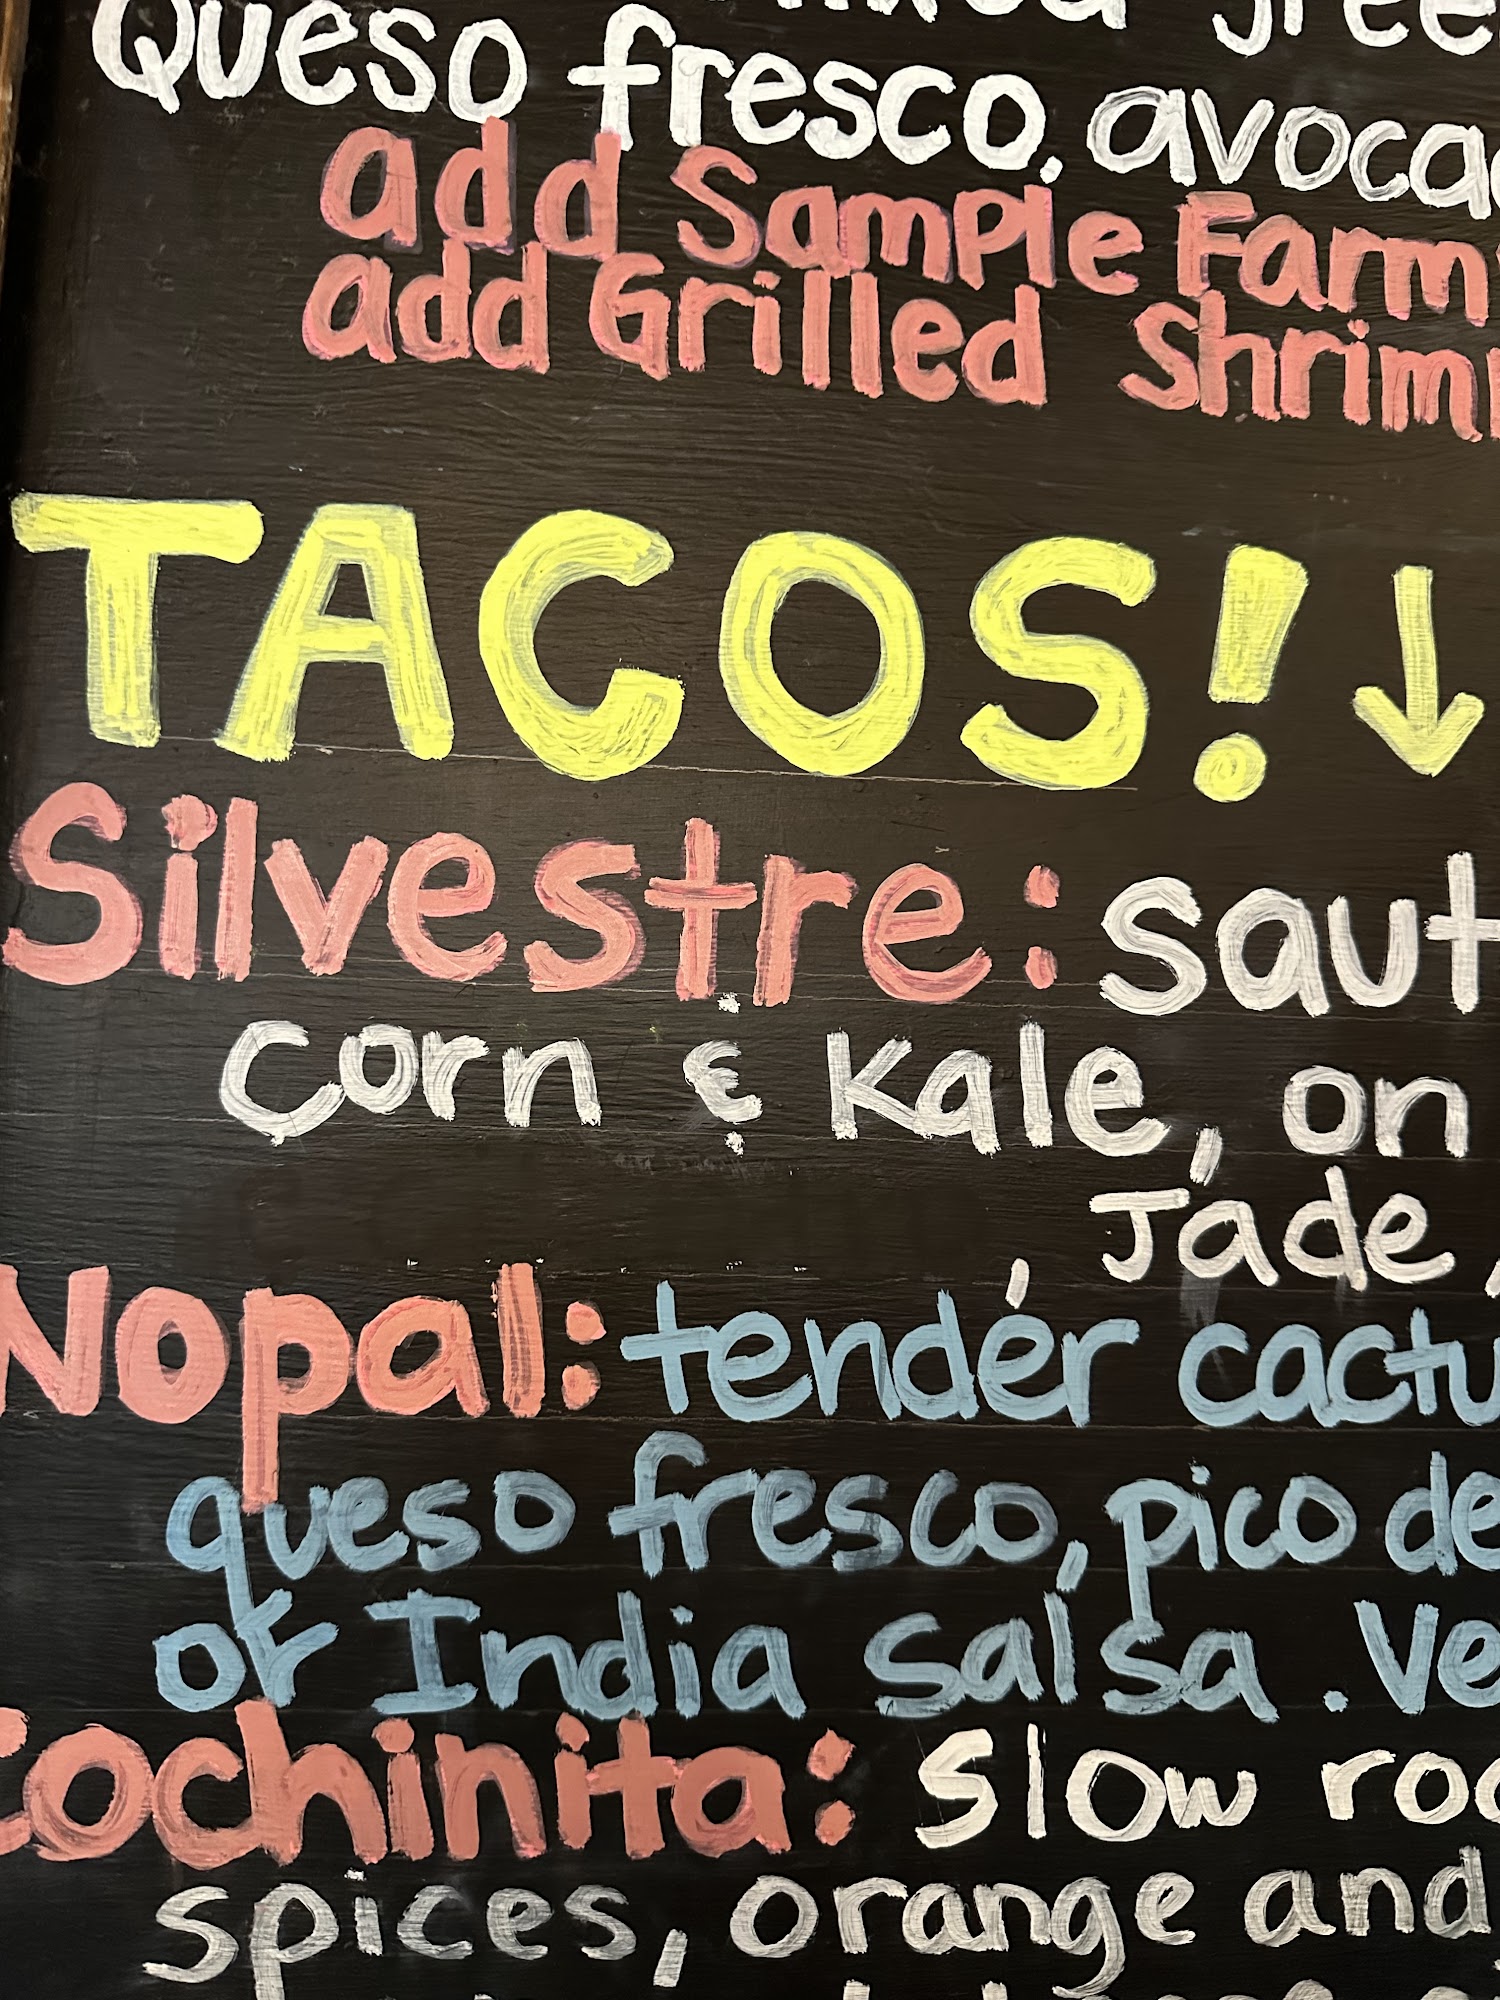 Queso fresco, avoca
add Sample Farm
add Grilled Shrim
TACOS! ↓
Silvestre: saut
Corn & Kale, on
Jade,
Nopal: tender cactu
queso fresco, pico de
of India salsa. Ve
Cochinita: slow ro
spices, orange and